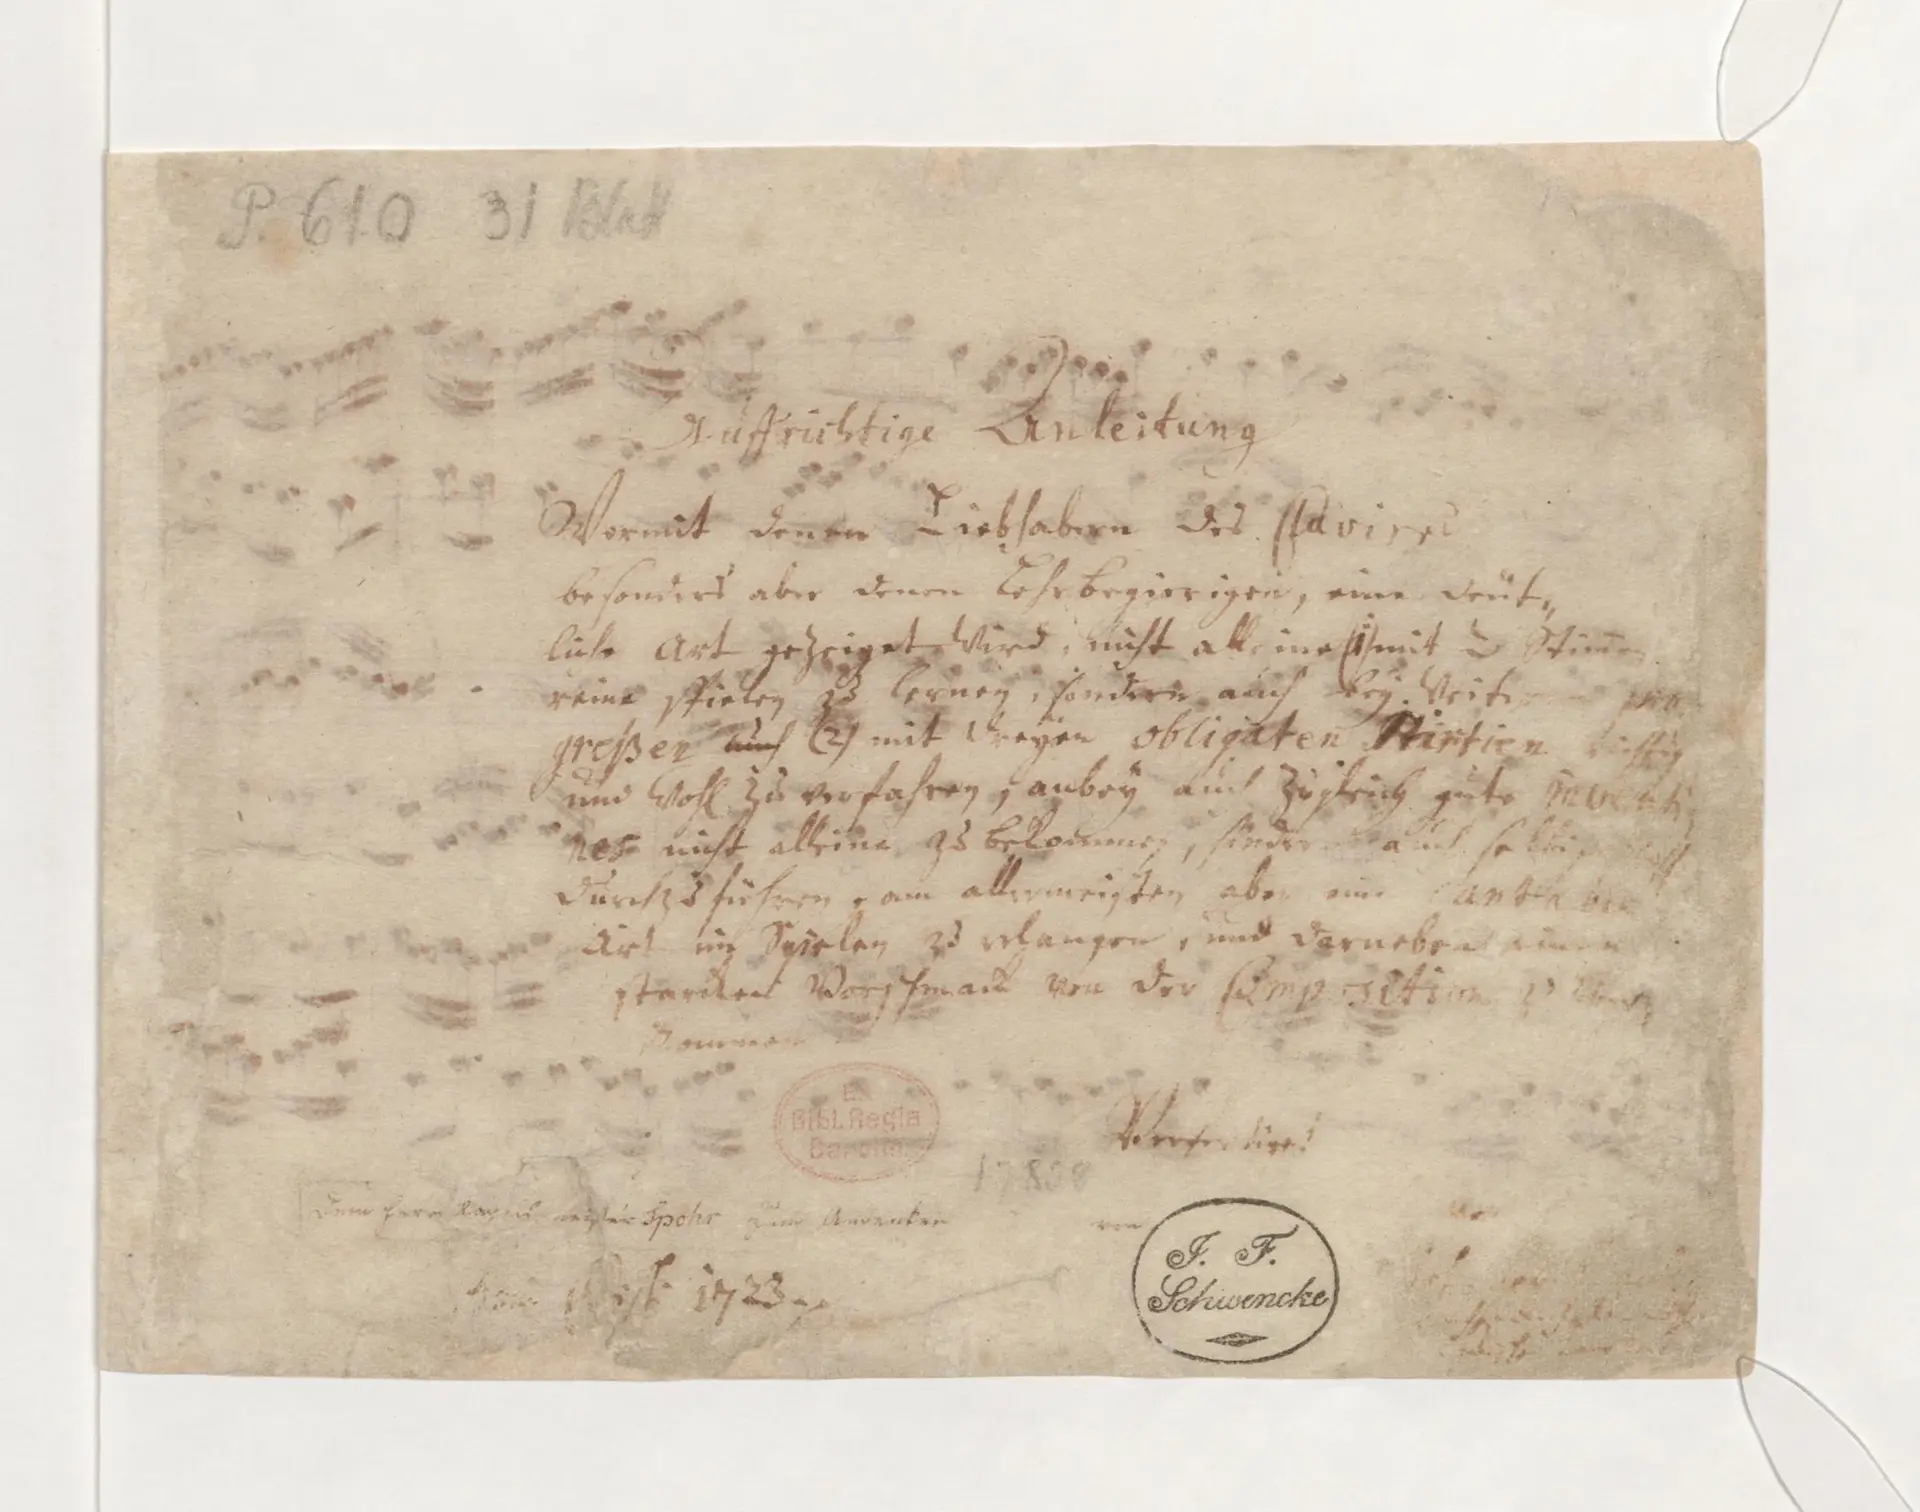 P. 610 31 Blatt
Auffrichtige Anleitung
Wormit denen Liebhabern des Clavires
besonders aber denen Lehrbegierigen, eine deüt,,
liche Art gezeiget wird, nicht alleine (1) mit 2 Stimen
reine spielen zu lernen, sondern auch bey weiteren pro
greßen auch (2) mit dreyen obligaten Partien richtig
und wohl zu verfahren, anbey auch zugleich gute inventi
nes nicht alleine zu bekommen, sondern auch selbige
durchzuführen, am allermeisten aber eine cantable
Art im Spielen zu erlangen, und darneben einen
starcken Vorschmack von der Composition zu über
kommen
Verfertiget
Ex
Bibl. Regia
Berolin.
17838
Dem Herrn Kapellmeister Spohr zum Andenken von
J. F.
Schwencke
von
1723.